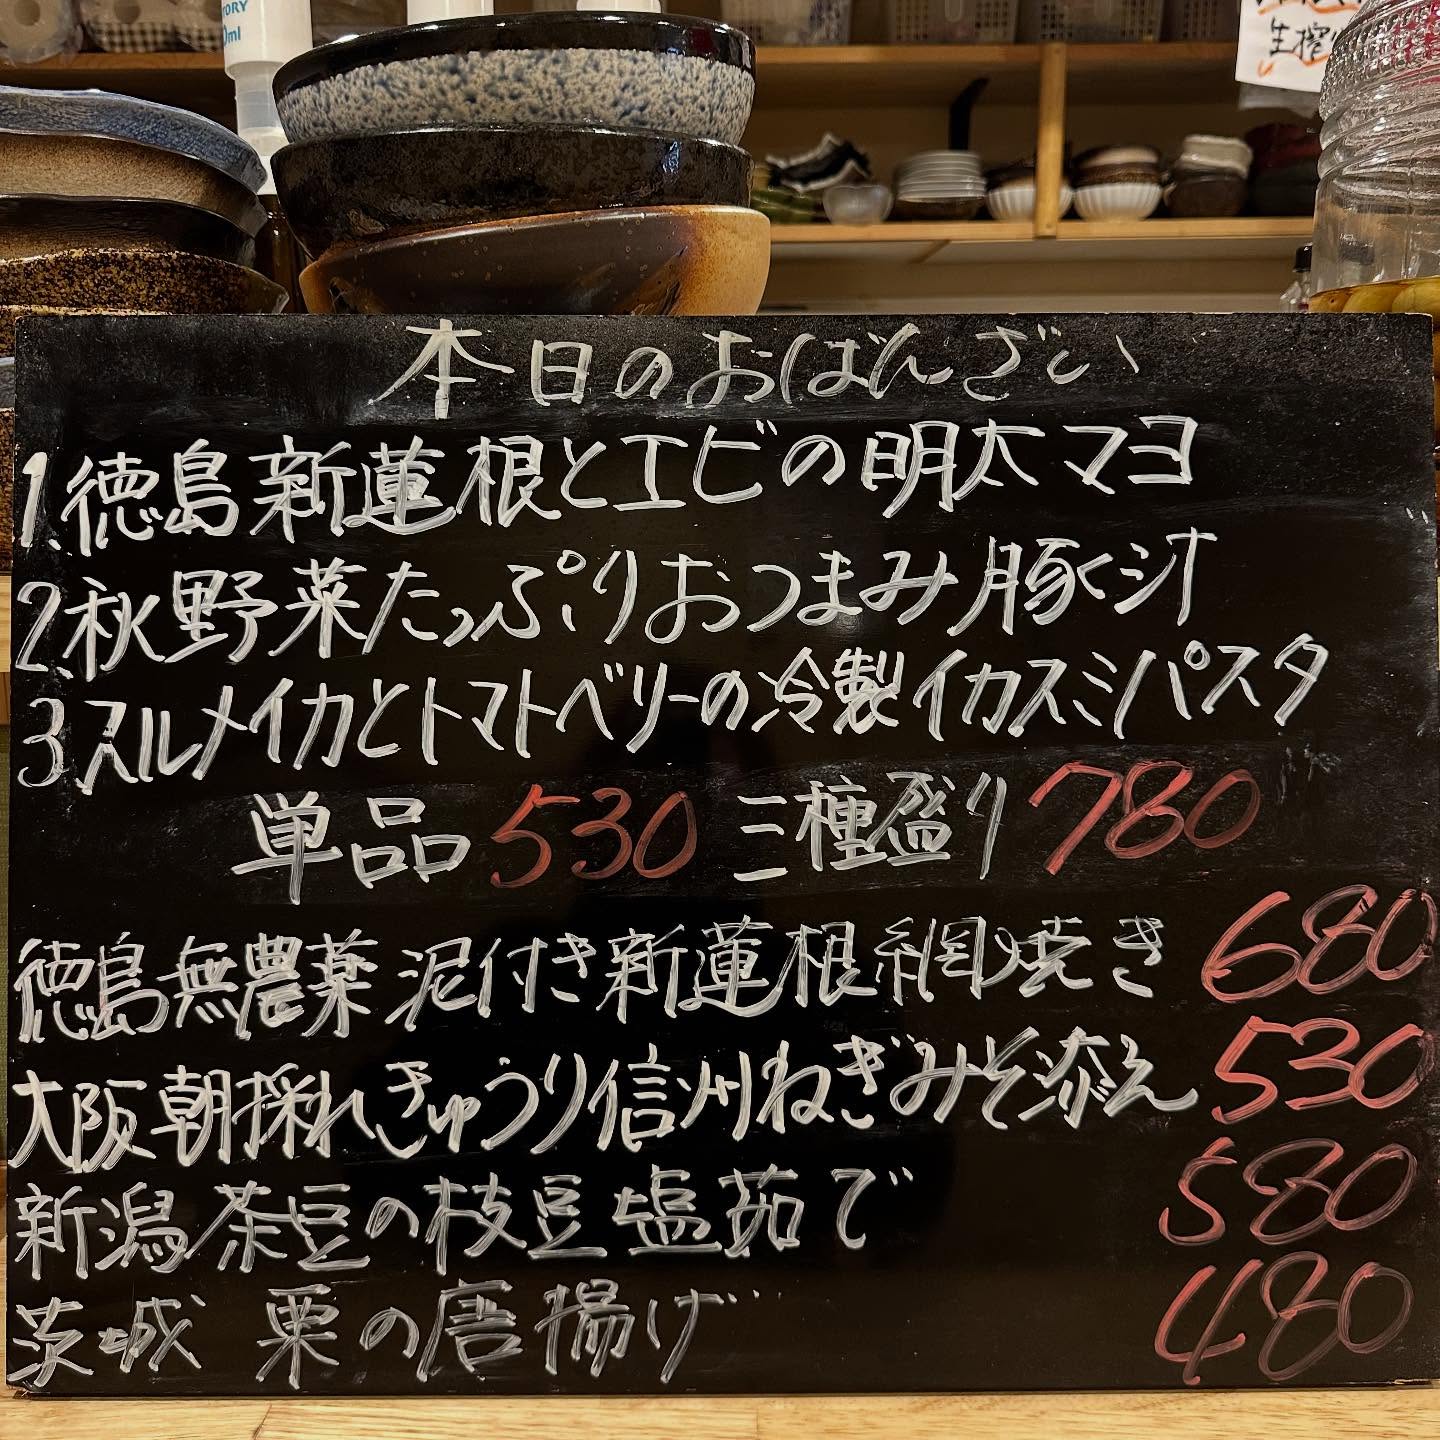 TORY
0ml
生搾り
本日のおばんざい
1.徳島新蓮根とエビの明太マヨ
2.秋野菜たっぷりおつまみ豚くシオ
3.スルメイカとトマトベリーの冷製イカスミパスタ
単品530 三種盛り780
徳島無農薬泥付き新蓮根網焼き 680
大阪朝採れきゅうり信州ねぎみそ添え 530
新潟茶豆の枝豆塩茹で 580
茨城 栗の唐揚げ 480